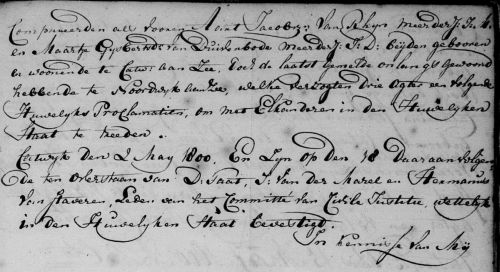 Compareerden als vooren Aant Jacobsz: Van der Lyn meerderj: J: M:
en Maartje Gysbertsd: van Duindenbode Meerderj: J: D: beyden gebooren
en woonende te Catwk aan Zee, doch de laatst gemelde onlangs gewoond
hebbende te Noordwyk aan Zee, welke verzogten drie agter een volgende
Huwelyks Proclamatien, om met Elkanderen in den Huwelyken
Staat te treeden.
Catwyk den 2 May 1800. En Zyn op den 18 Daar aan volgen
de ten overstaan van D: Taat, J: Van der Marel en Hermanus
Van Staveren, Leden van het Committe van Civile Justitie, wettelyk
in den Huwelyken Staat bevestigt.
In kennisse van Mij